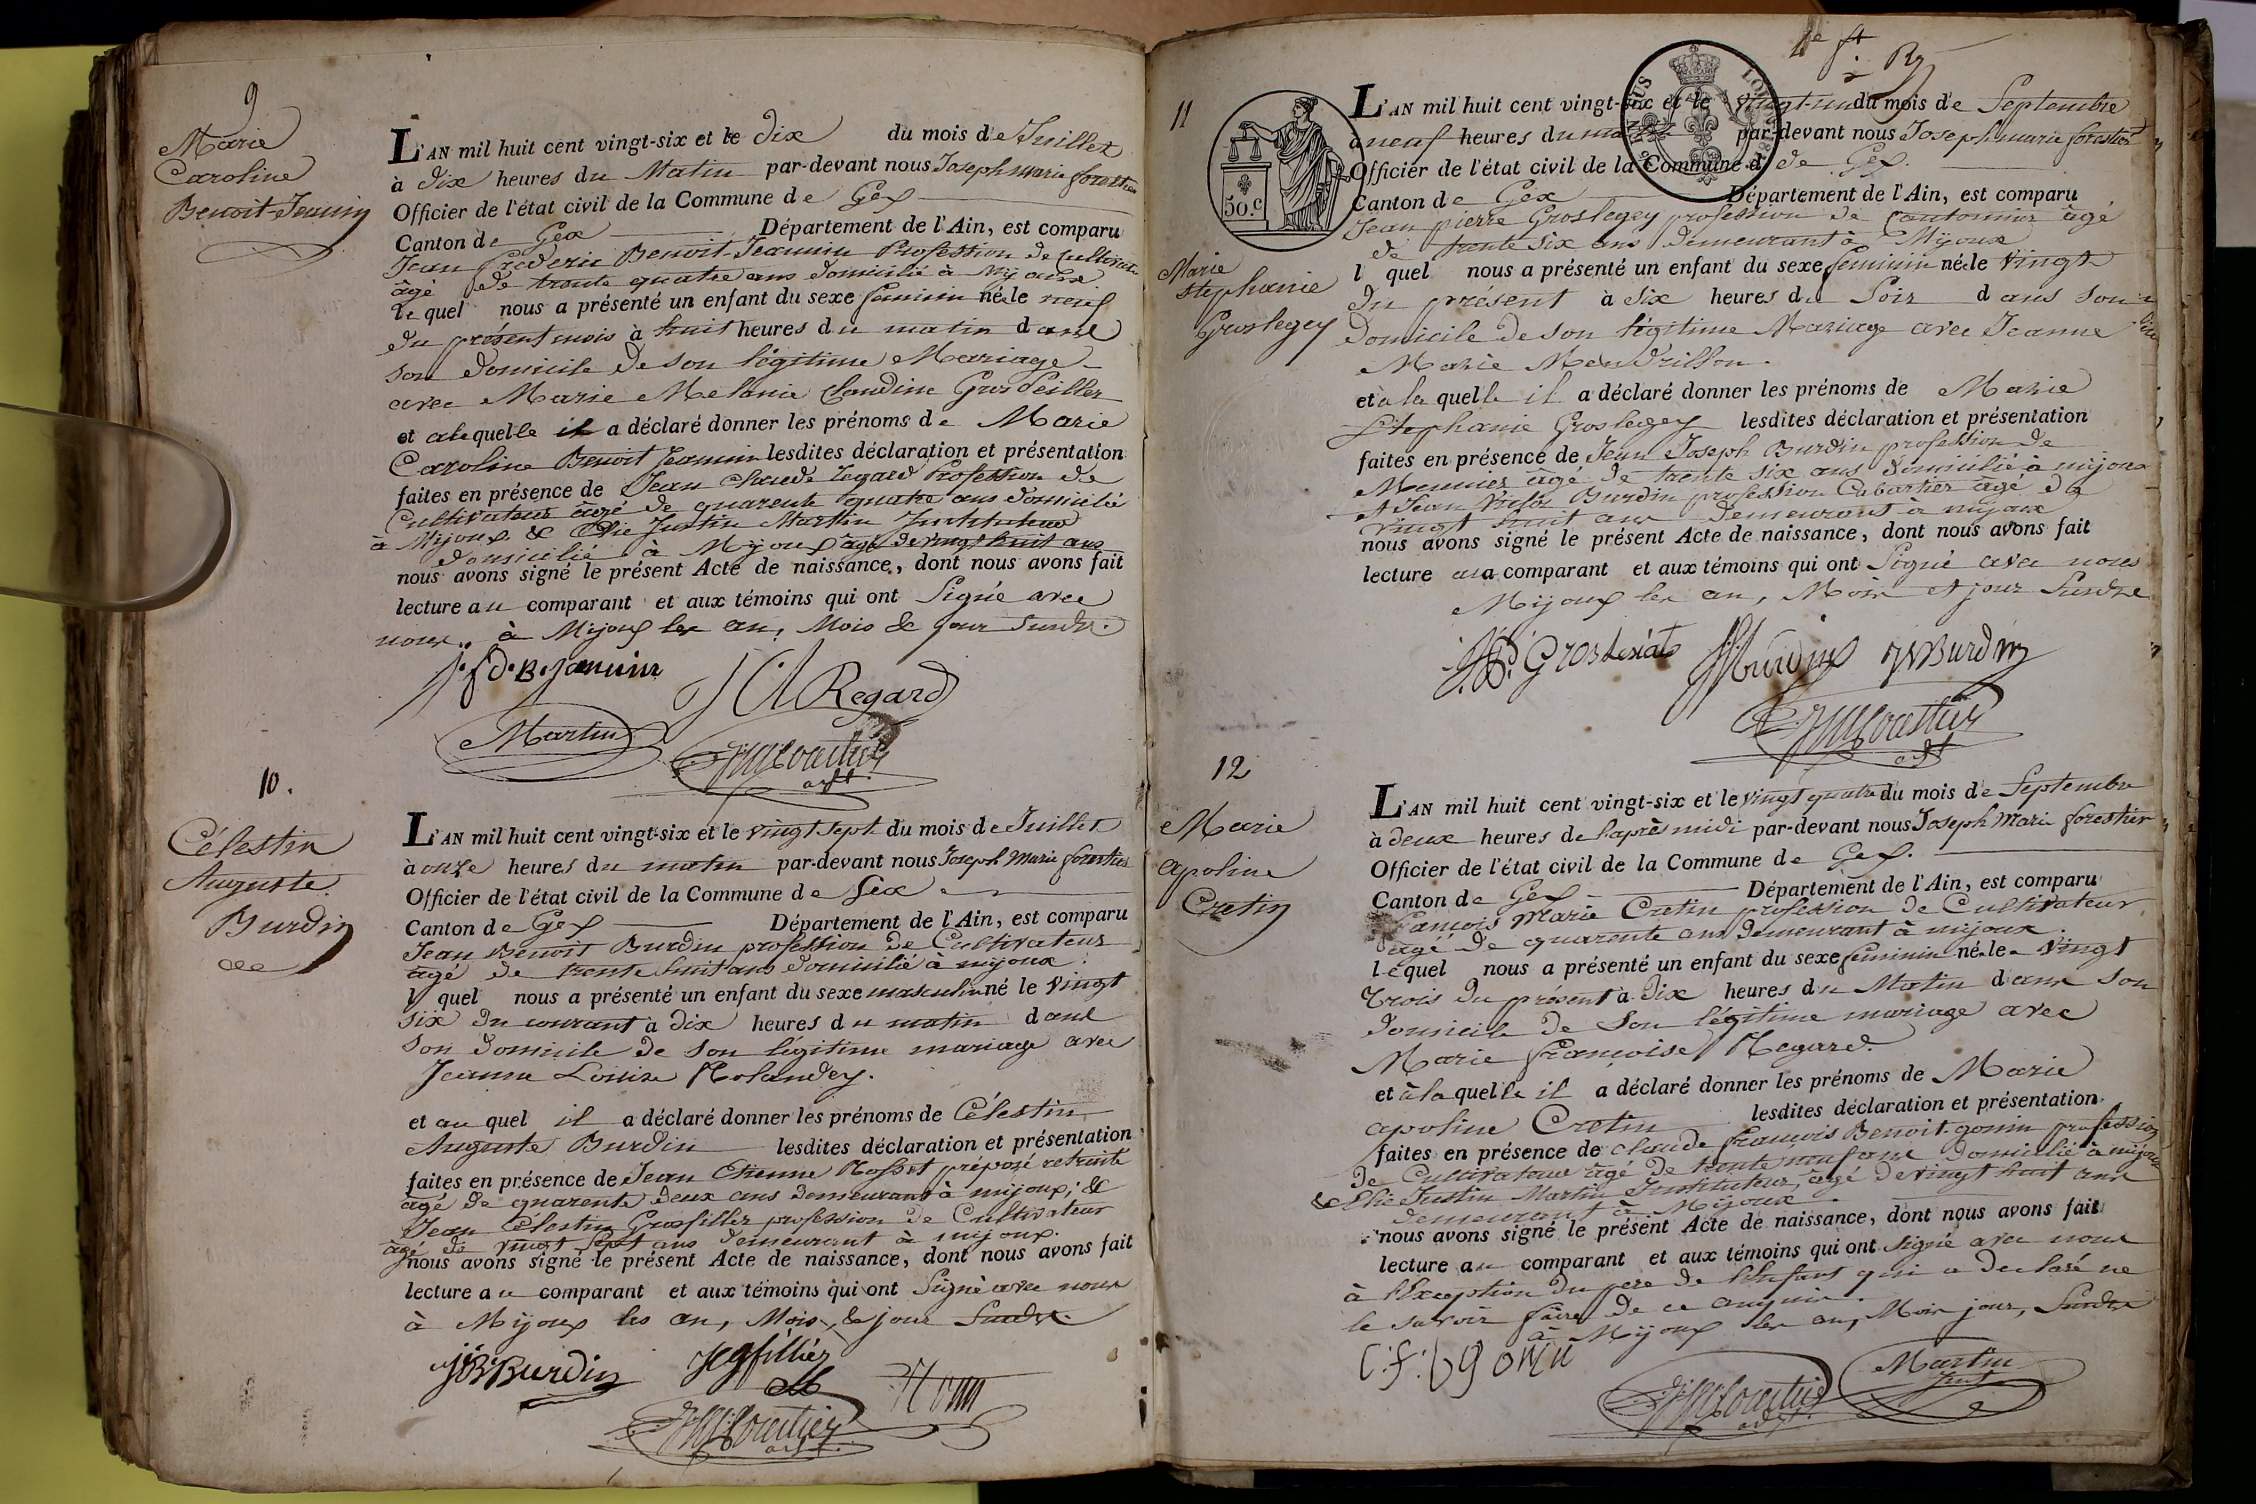 9
Marie
Caroline
Benoit-Jeannin
L'AN mil huit cent vingt-six et le dix du mois de Juillet
à dix heures du Matin par-devant nous Joseph marie forestier
Officier de l'état civil de la Commune de Gex
Canton de Gex Département de l'Ain, est comparu
Jean frederic Benoit-Jeannin Profession de Cultivateur
âgé de trente quatre ans domicilié à Mijoux
le quel nous a présenté un enfant du sexe feminin née le neuf
du présent mois à huit heures du matin dans
son domicile de son légitime Mariage
avec Marie Melanie Claudine Grosfeiller
et à laquelle il a déclaré donner les prénoms de Marie
Caroline Benoit Jeannin lesdites déclaration et présentation
faites en présence de Jean Claude regard Profession de
Cultivateur âgé de quarente quatre ans domicilié
à Mijoux & Elie Justin Martin Instituteur
domicilié à Mijoux âgé de vingt huit ans
nous avons signé le présent Acte de naissance, dont nous avons fait
lecture au comparant et aux témoins qui ont Signé avec
nous. à Mijoux les an, Mois & jour Susdit.
J. f d. B. Janniin
J Cl Regard
Martin
JMforestier
adjt
10.
Célestin
Auguste
Burdin
L'AN mil huit cent vingt-six et le vingt sept du mois de Juillet
à onze heures du matin par-devant nous Joseph Marie forestier
Officier de l'état civil de la Commune de Gex
Canton de Gex Département de l'Ain, est comparu
Jean Benoit Burdin profession de Cultivateur
âgé de trente huit ans domicilié à mijoux.
l quel nous a présenté un enfant du sexe masculin né le vingt
six du courant à dix heures du matin dans
son domicile de son légitime mariage avec
Jeanne Louise Rolandez.
et au quel il a déclaré donner les prénoms de Célestin
Auguste Burdin lesdites déclaration et présentation
faites en présence de Jean Etienne Rosset préposé retraité
âgé de quarente deux ans demeurant à mijoux; &
Jean Célestin Grosfiller profession de Cultivateur
âgé de vingt sept ans demeurant à mijoux.
nous avons signé le présent Acte de naissance, dont nous avons fait
lecture au comparant et aux témoins qui ont Signé avec nous
à Mijoux les an, Mois, & jour Susdit.
JBBurdin
Jcgfillier
JMforestier
adjt
11
Marie
stephanie
Groslegey
50.c
L'AN mil huit cent vingt-six et le vingt-un du mois de Septembre
à neuf heures du matin par-devant nous Joseph marie forestier
Officier de l'état civil de la Commune de Gex.
Canton de Gex Département de l'Ain, est comparu
Jean pierre Groslegey profession de Cantonnier âgé
de trente six ans demeurant à Mijoux
l quel nous a présenté un enfant du sexe feminin née le vingt
du présent à six heures du Soir dans son
domicile de son légitime Mariage avec Jeanne
Marie Mandrillon.
et à la quelle il a déclaré donner les prénoms de Marie
Stephanie Groslegey lesdites déclaration et présentation
faites en présence de Jean Joseph Burdin profession de
Meunier âgé de trente six ans domicilié à mijoux
et Jean Victor Burdin profession Cabartier âgé de
vingt huit ans demeurant à mijoux
nous avons signé le présent Acte de naissance, dont nous avons fait
lecture au comparant et aux témoins qui ont Signé avec nous
Mijoux les an, Mois et jour Susdit
JJBurdin JVBurdin
JMforestier
adjt
12
Marie
apoline
Cretin
L'AN mil huit cent vingt-six et le vingt quatre du mois de Septembre
à deux heures de l'après midi par-devant nous Joseph Marie forestier
Officier de l'état civil de la Commune de Gex.
Canton de Gex Département de l'Ain, est comparu
françois Marie Cretin profession de Cultivateur
âgé de quarente ans demeurant à mijoux.
lequel nous a présenté un enfant du sexe feminin née le vingt
trois du présent à dix heures du Matin dans son
domicile de son légitime mariage avec
Marie françoise Regard.
et à la quelle il a déclaré donner les prénoms de Marie
apoline Cretin lesdites déclaration et présentation
faites en présence de claude françois Benoit-gonin profession
de Cultivateur âgé de trente neuf ans domicilié à mijoux
& Elie Justin Martin Instituteur, âgé de vingt huit ans
demeurant à Mijoux
nous avons signé le présent Acte de naissance, dont nous avons fait
lecture au comparant et aux témoins qui ont signé avec nous
à l'Exception du pere de l'Enfant qui a declaré ne
le savoir faire de ce enquis.
à Mijoux les an, Mois jour, Susdit
C:f:bgonin
Martin
Inst
JMforestier
adjt